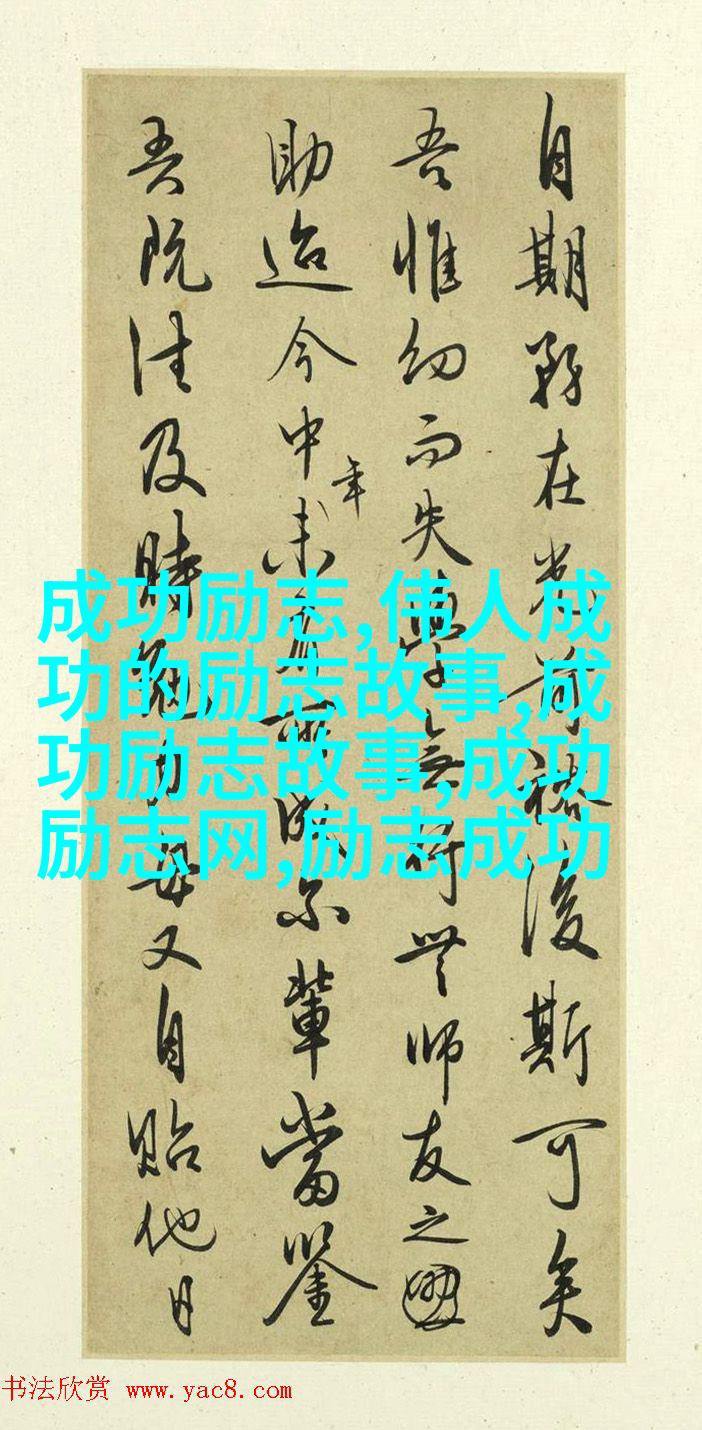 自期務在光前裕後斯可矣
吾惟幼而失學無行無師友之
助迨今中年未有所成尔輩當鑒
吾既往及時勉力毋又自貽他日
成功励志,伟人成
功的励志故事,成
功励志故事,成功
励志网,励志成功
书法欣赏 www.yac8.com